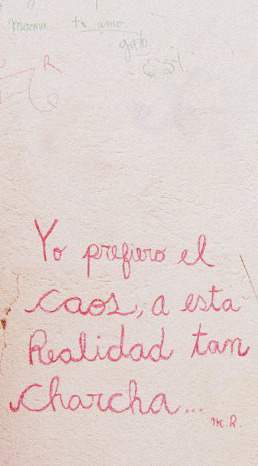 mama te amo.
Yo prefiero el
caos, a esta
Realidad tan
charcha...
m.R.